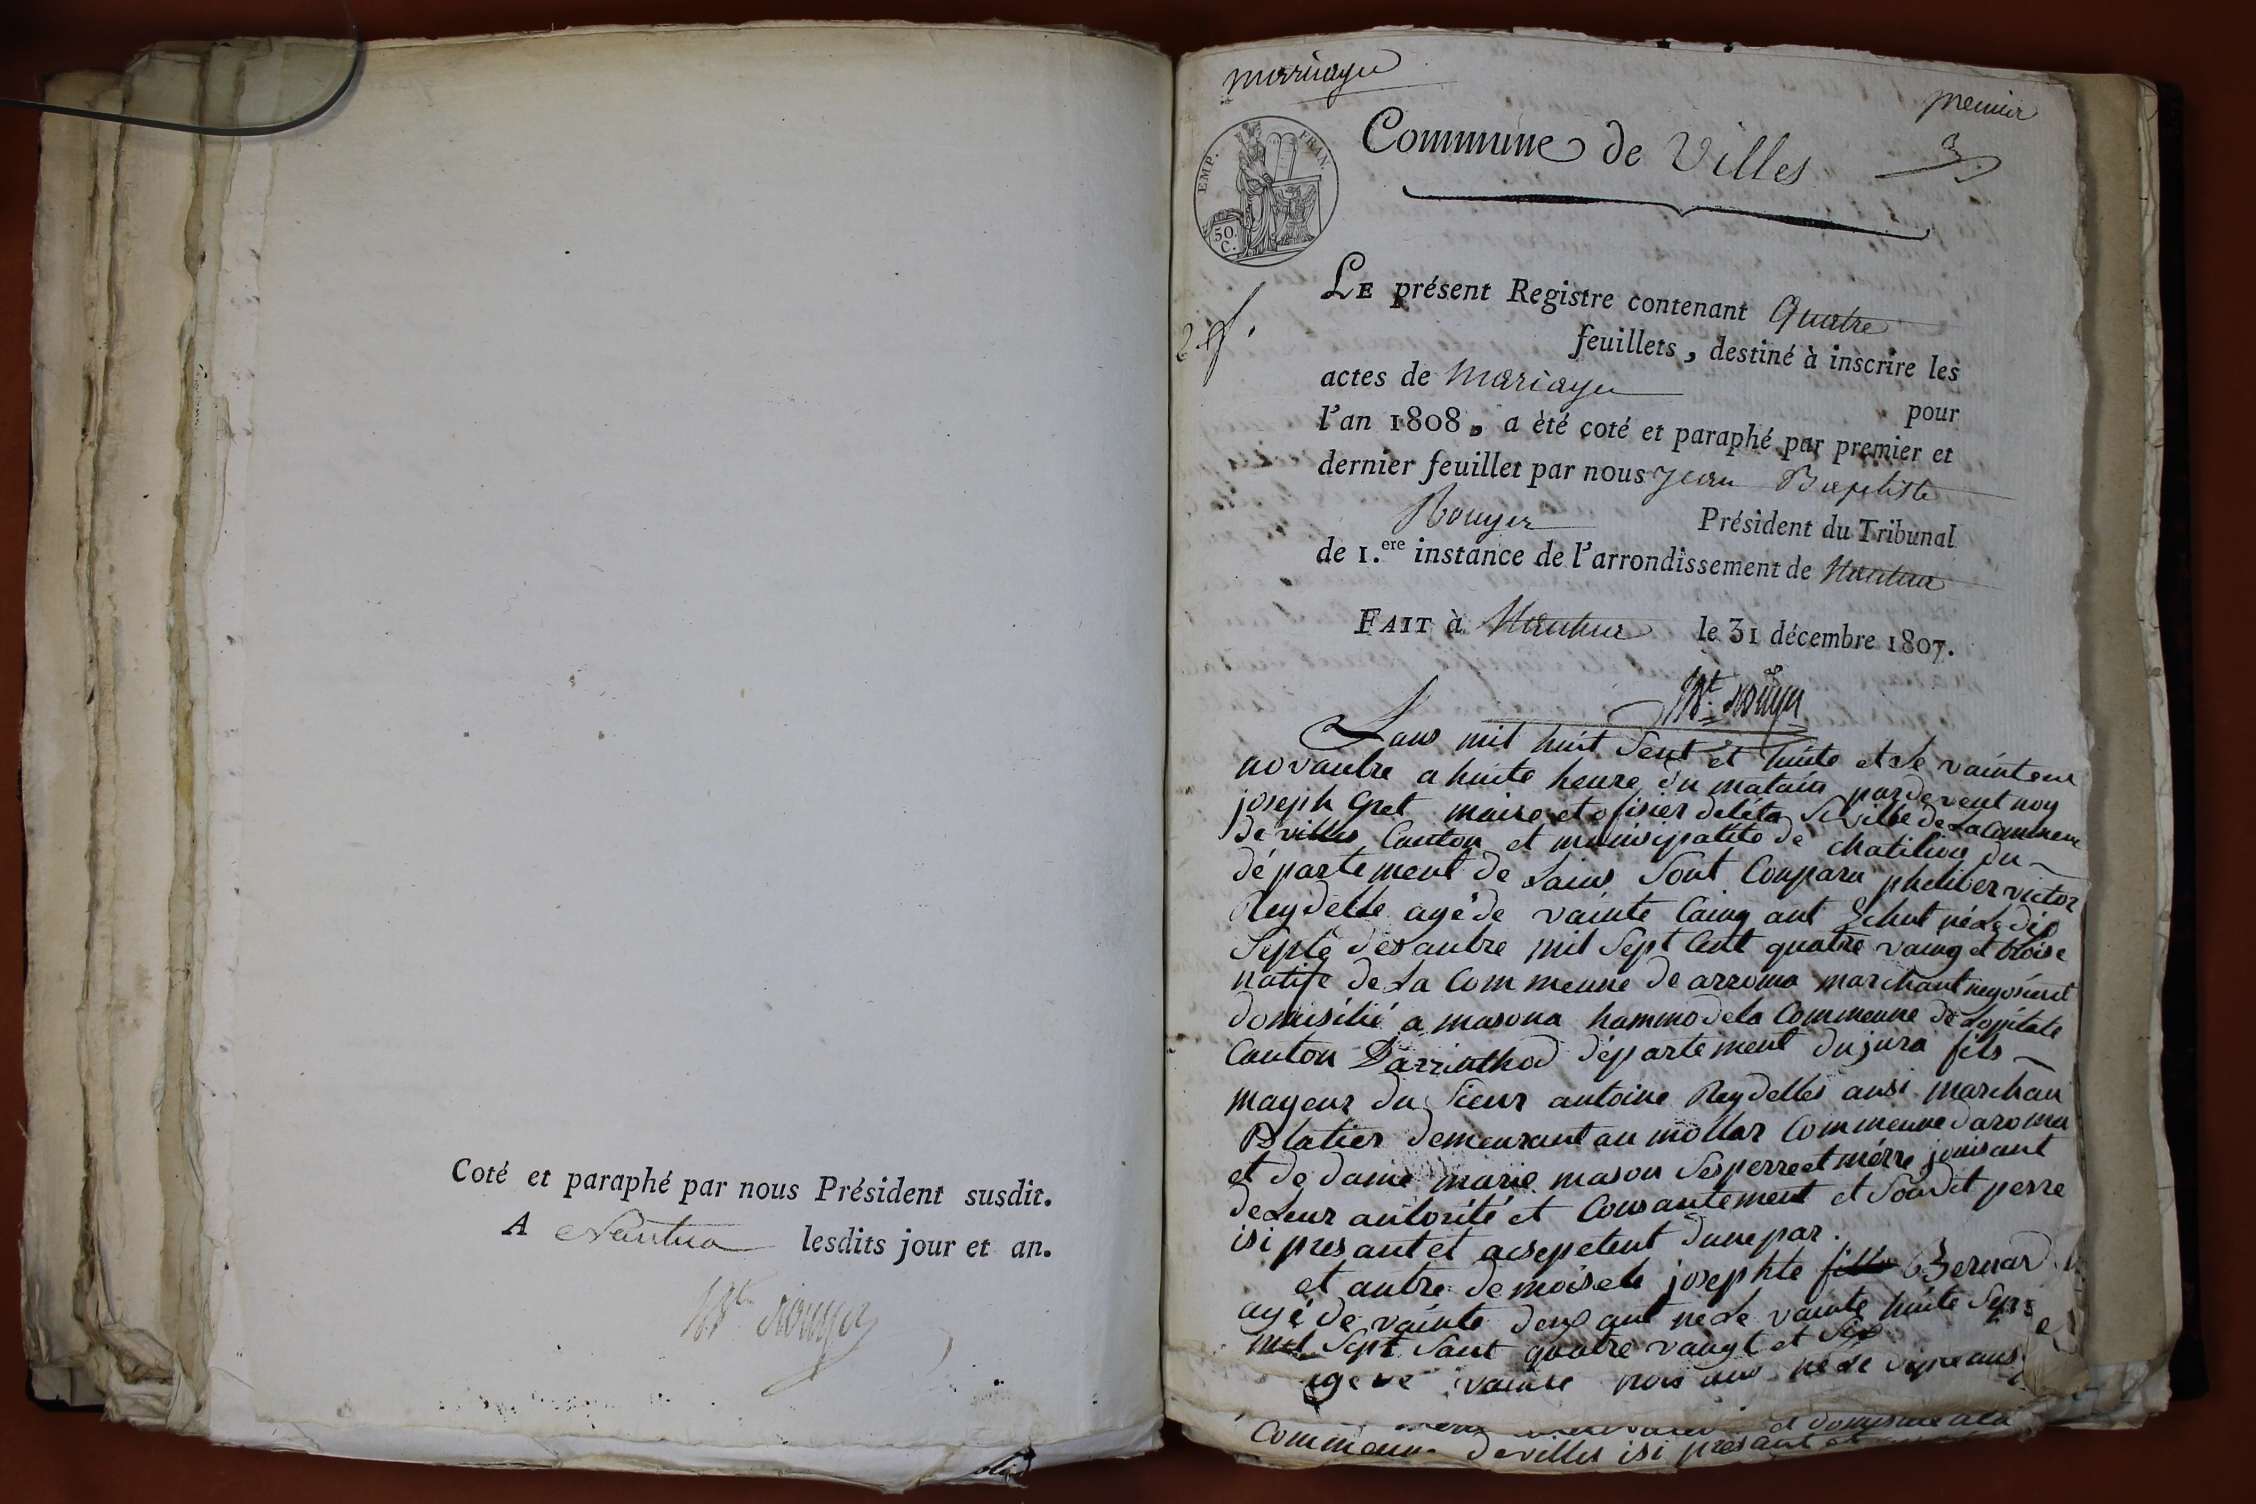 Coté et paraphé par nous Président susdit.
A Nantua lesdits jour et an.
Bte Rouyer
marriage
premier
EMP. FRAN.
50.
C.
Commune de Villes
LE présent Registre contenant Quatre
feuillets, destiné à inscrire les
actes de Mariage
pour
l'an 1808, a èté coté et paraphé par premier et
dernier feuillet par nous Jean Baptiste
Rouyer Président du Tribunal
de 1.ere instance de l'arrondissement de Nantua
2 f.
FAIT à Nantua le 31 décembre 1807.
Bte Rouyer
Lans mil huit Sent et huite et le vainteun
novanbre a huite heure du matain pardevent nou
joseph Gret maire et ofisier deléta Siville de La Commene
De villes Canton et munisipalité de chatilion du
département de Lains Sont Conparu pheliber victor
Reydelle agé de vainte Cainq ant Echut né Le dis
Septe des anbre mil Sept Cent quatre vaing et troise
natife de La Commeune de arroma marchant negosient
domisélié a masona hammo de la Commeune de Lopitale
Canton Darrinthod département du jura fils
mayeur du Sieur antoine Reydelles ausi marchan
Blatier demeurant au mollar Commeune daroma
et de dame marie mason Ses perre et mérre jouisant
de Leur autorité et Consantement et Soudit perre
isi presant et acsepetent dune par.
et autre demoisele josephte Bernard
agé de vainte deux ant né Le vainte huite Sep
mil Sept Sant quatre vaingt et Six
agé de vainte trois ans né Le
et domisiliée a la
Commeune de villes isi presant et